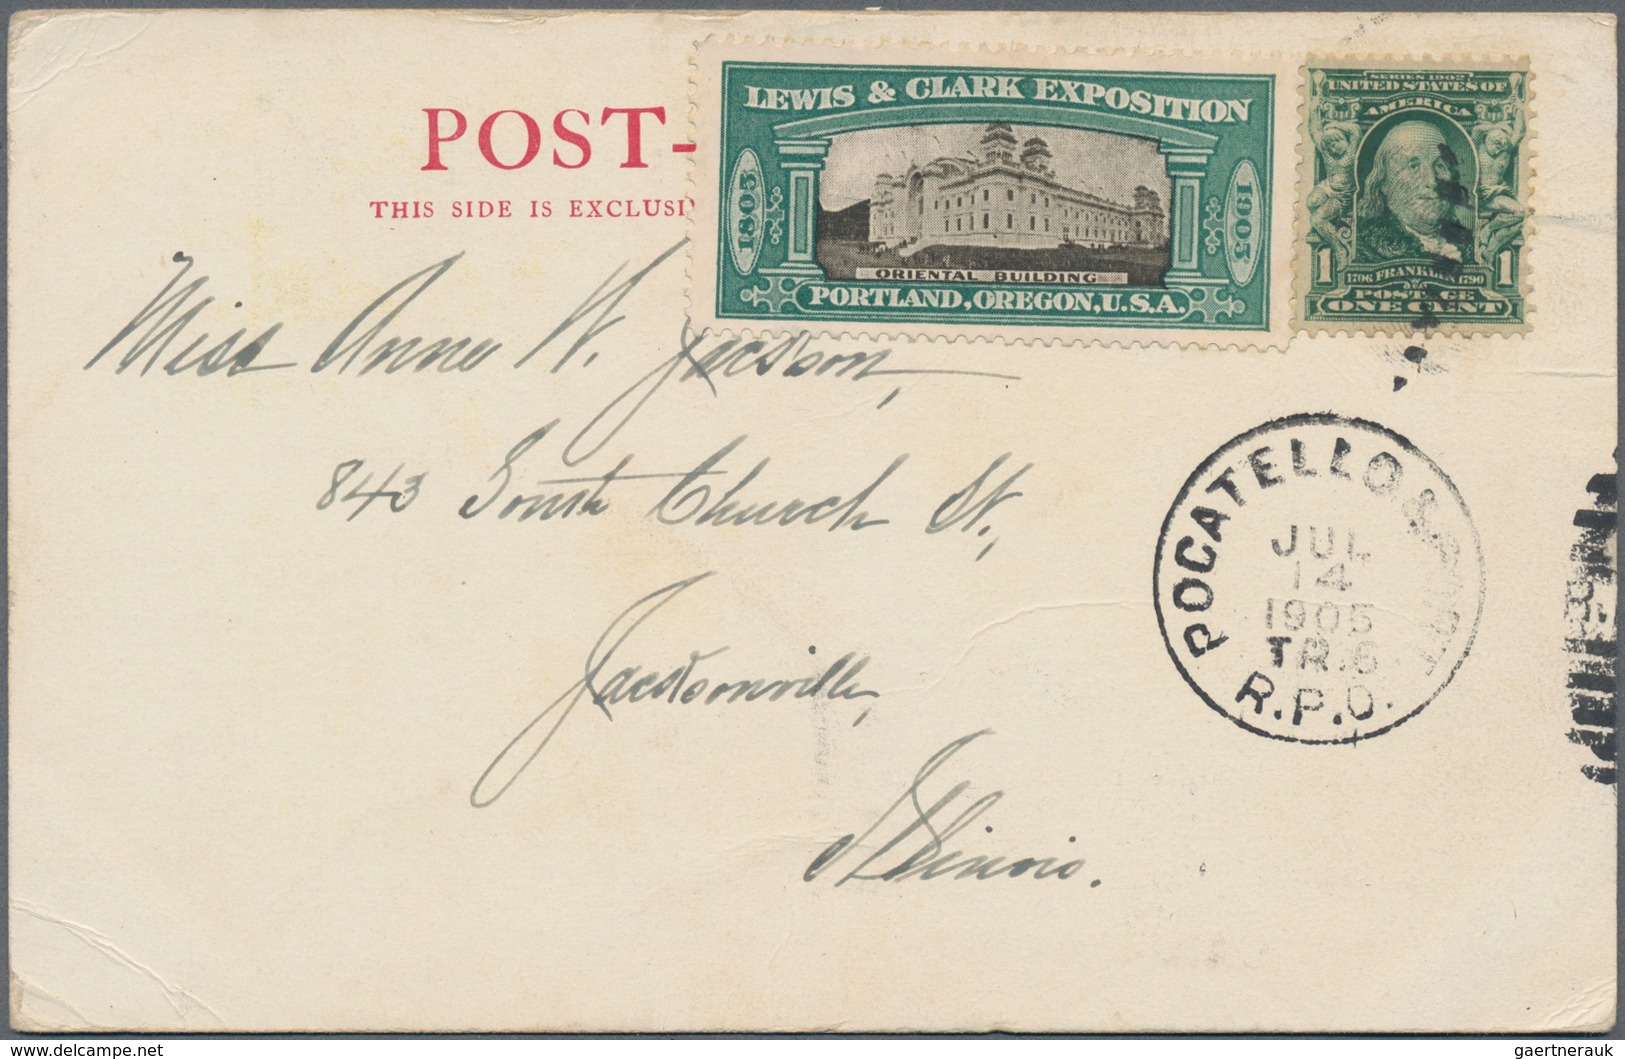 POST-
THIS SIDE IS EXCLUSI
LEWIS & CLARK EXPOSITION
1805
1905
ORIENTAL BUILDING
PORTLAND, OREGON, U.S.A.
SERIES 1902
UNITED STATES OF
AMERICA
1 1706 FRANKLIN 1790 1
POSTAGE
ONE CENT
Miss Anne W. Jackson,
843 South Church St.,
Jacksonville,
Illinois.
POCATELLO &
JUL
14
1905
TR.6
R.P.O.
www.delcampe.net
gaertnerauk